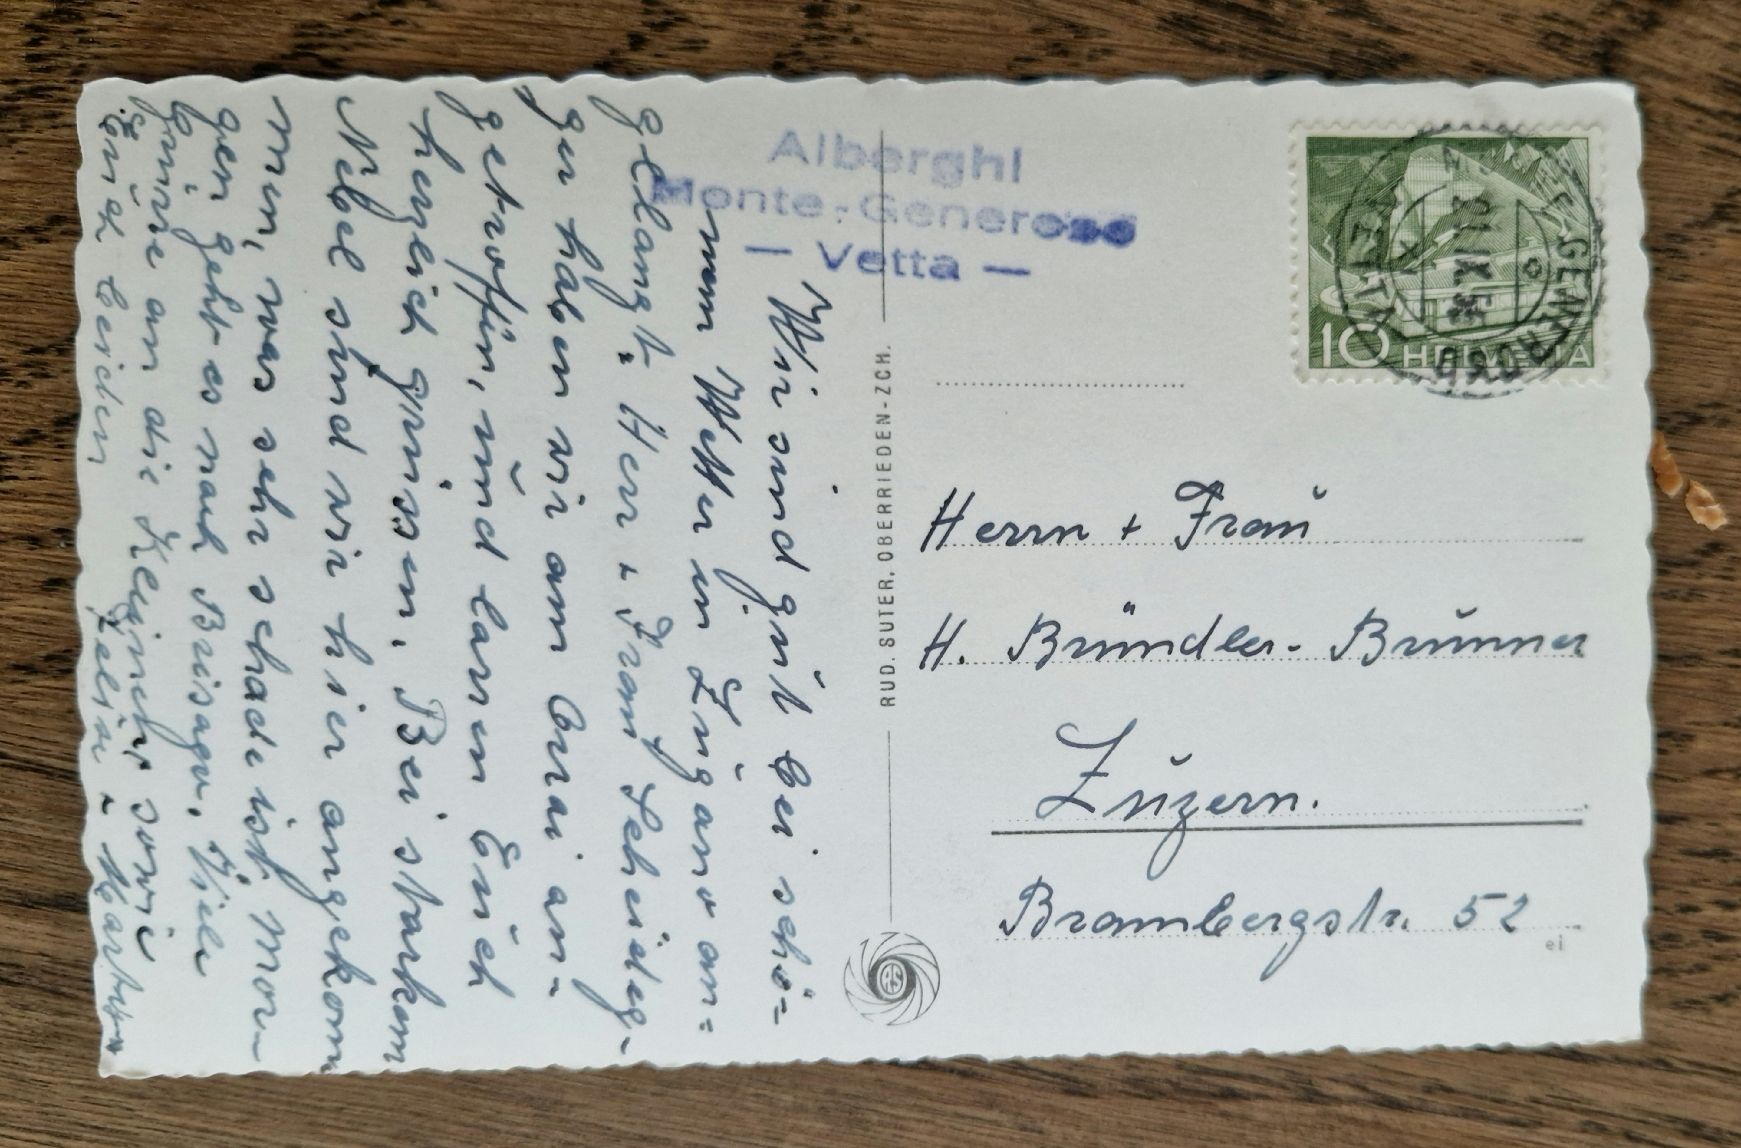 Alberghi
Monte-Generoso
— Vetta —
Wir sind gut bei schö=
nem Wetter in Lugano an=
gelangt. Herr u. Frau
gen haben wir am Quai an-
getroffen, und lassen Euch
herzlich grüssen. Bei starkem
Nebel sind wir hier angekom
men, was sehr schade ist. Mor-
gen geht es nach Brisago. Viele
Grüsse an die Kleinen sowie
Euch beiden
RUD. SUTER, OBERRIEDEN-ZCH.
RS
10 HELVETIA
GENEROSO
VETTA
21.IX.
Herrn + Frau
H. Bründler-Brunner
Luzern.
Brambergstr. 52
ei